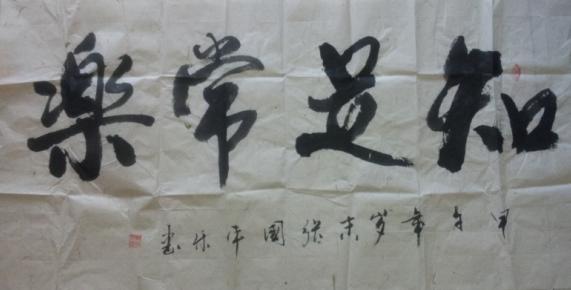 知足常樂
甲午年岁末张国乐书